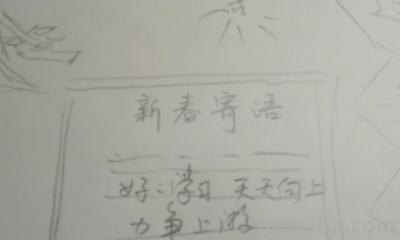 新春寄语
好好学习 天天向上
力争上游